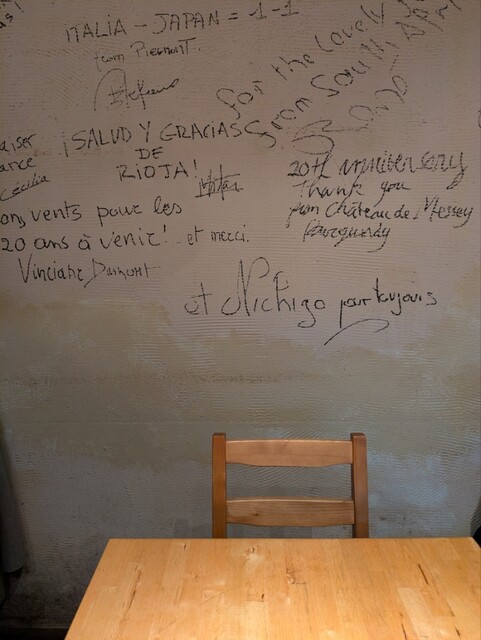 ITALIA - JAPAN = 1-1
from Piemont.
for the lovely
from South
¡SALUD Y GRACIAS
DE
RIOJA!
aiser
ance
Cécilia
20th anniversary
Thank you
from Château de Messey
Burgundy
ons vents pour les
20 ans à venir! et merci.
Vinciane
et Nichigo pour toujours